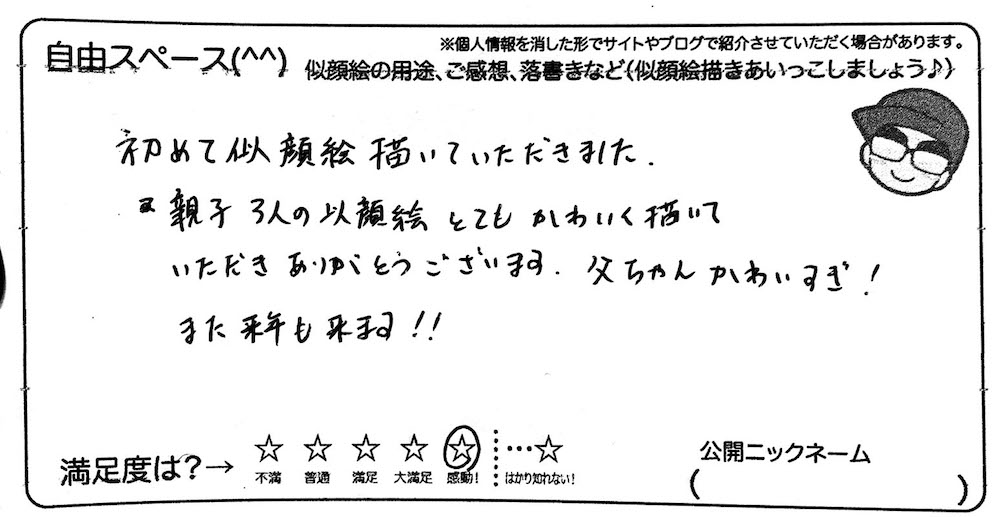 ※個人情報を消した形でサイトやブログで紹介させていただく場合があります。
自由スペース(^^) 似顔絵の用途、ご感想、落書きなど(似顔絵描きあいっこしましょう♪)
初めて似顔絵描いていただきました.
親子3人の似顔絵とてもかわいく描いて
いただきありがとうございます. 父ちゃんかわいすぎ!
また来年も来ます!!
満足度は?→ ☆ ☆ ☆ ☆ ☆ …☆
不満 普通 満足 大満足 感動! はかり知れない!
公開ニックネーム
( )